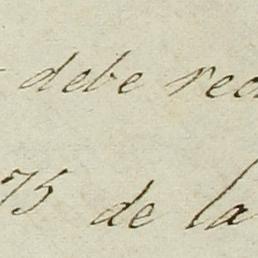 debe
75 de la